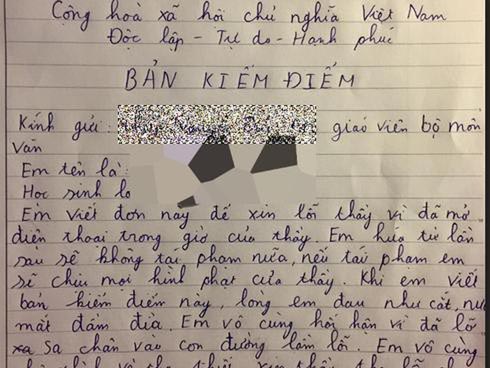 Cộng hoà xã hội chủ nghĩa Việt Nam
Độc lập - Tự do - Hạnh phúc
BẢN KIỂM ĐIỂM
Kính gửi: giáo viên bộ môn
Văn
Em tên là:
Học sinh lớ
Em viết đơn này để xin lỗi thầy vì đã mở
điện thoại trong giờ của thầy. Em hứa từ lần
sau sẽ không tái phạm nữa, nếu tái phạm em
sẽ chịu mọi hình phạt của thầy. Khi em viết
bản kiểm điểm này, lòng em đau như cắt, nước
mắt đầm đìa. Em vô cùng hối hận vì đã lỡ
sa chân vào con đường lầm lỗi. Em vô cùng